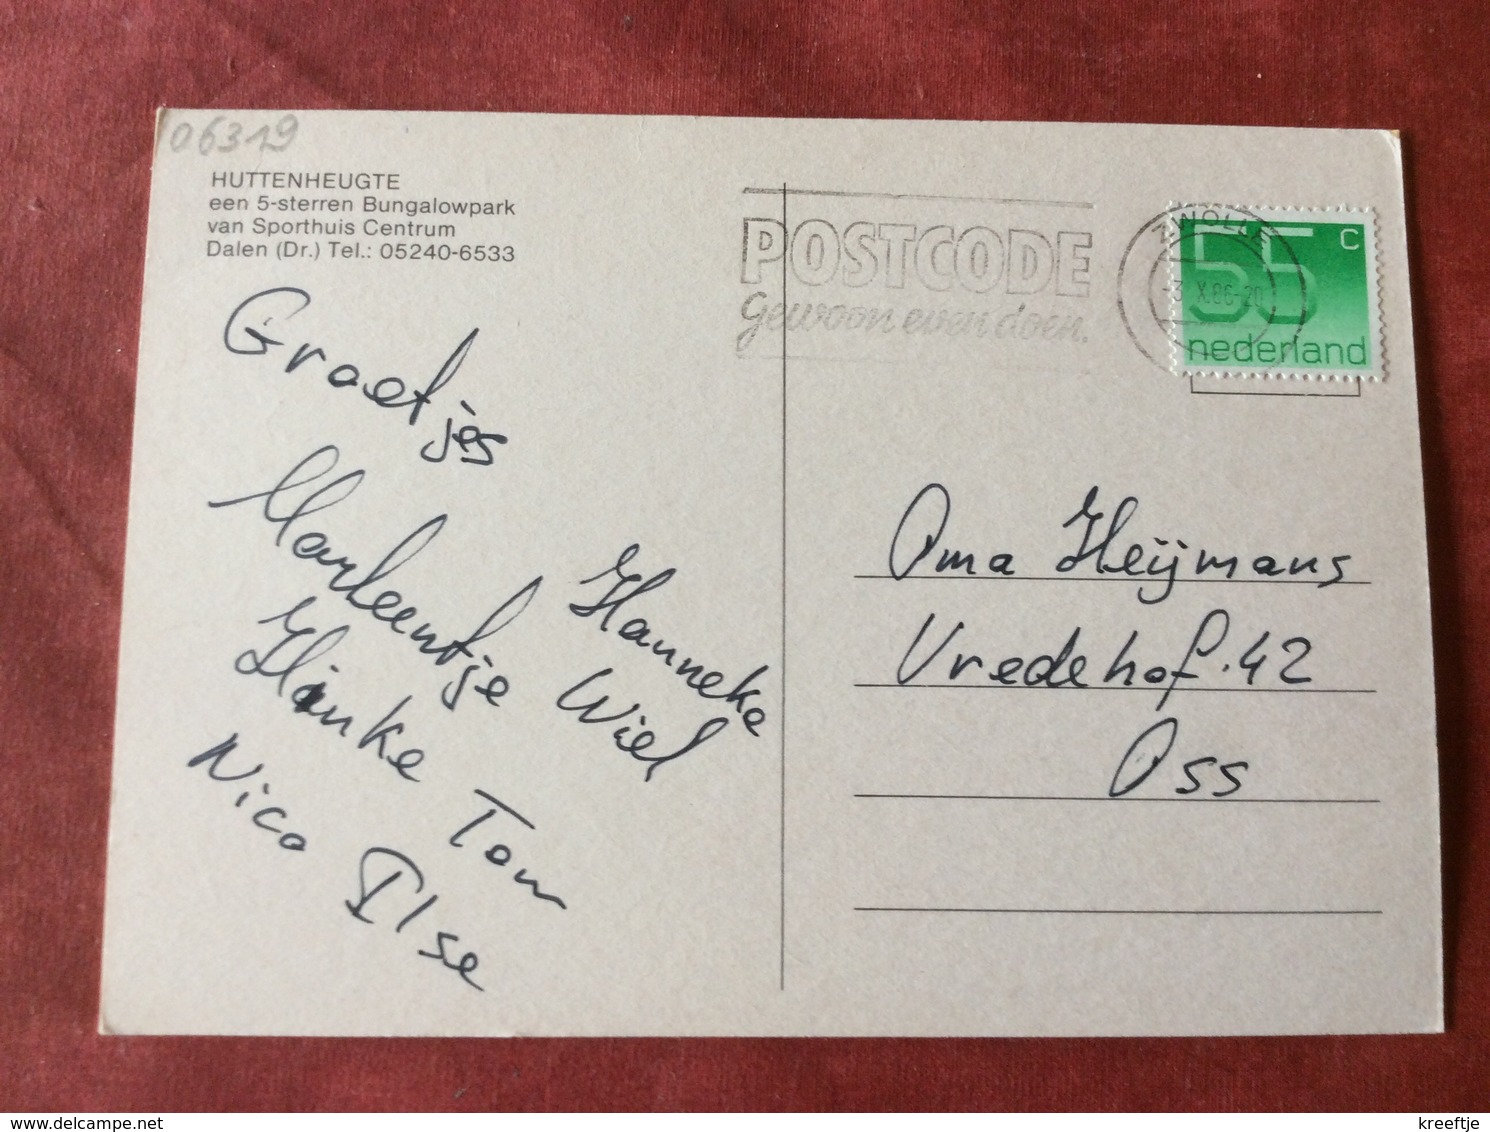 06319
HUTTENHEUGTE
een 5-sterren Bungalowpark
van Sporthuis Centrum
Dalen (Dr.) Tel.: 05240-6533
POSTCODE
gewoon even doen.
ZWOLLE
-3.X.86-20
55 c
nederland
Groetjes
Marleentje Hanneke
Hinke Wiel
Nico Tom
Ilse
Oma Heijmans
Vredehof. 42
Oss
kreeftje